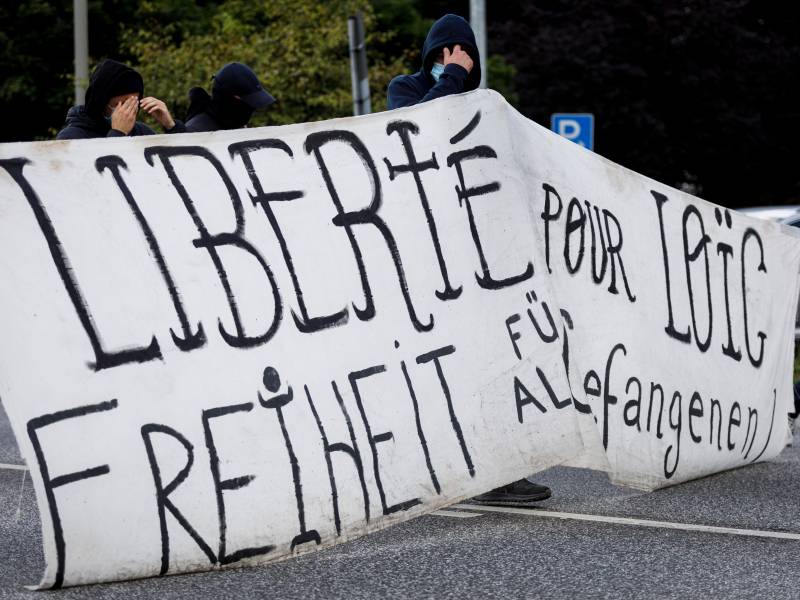 LIBERTÉ POUR LOÏC
FREIHEIT FÜR
ALLE Gefangenen!
P